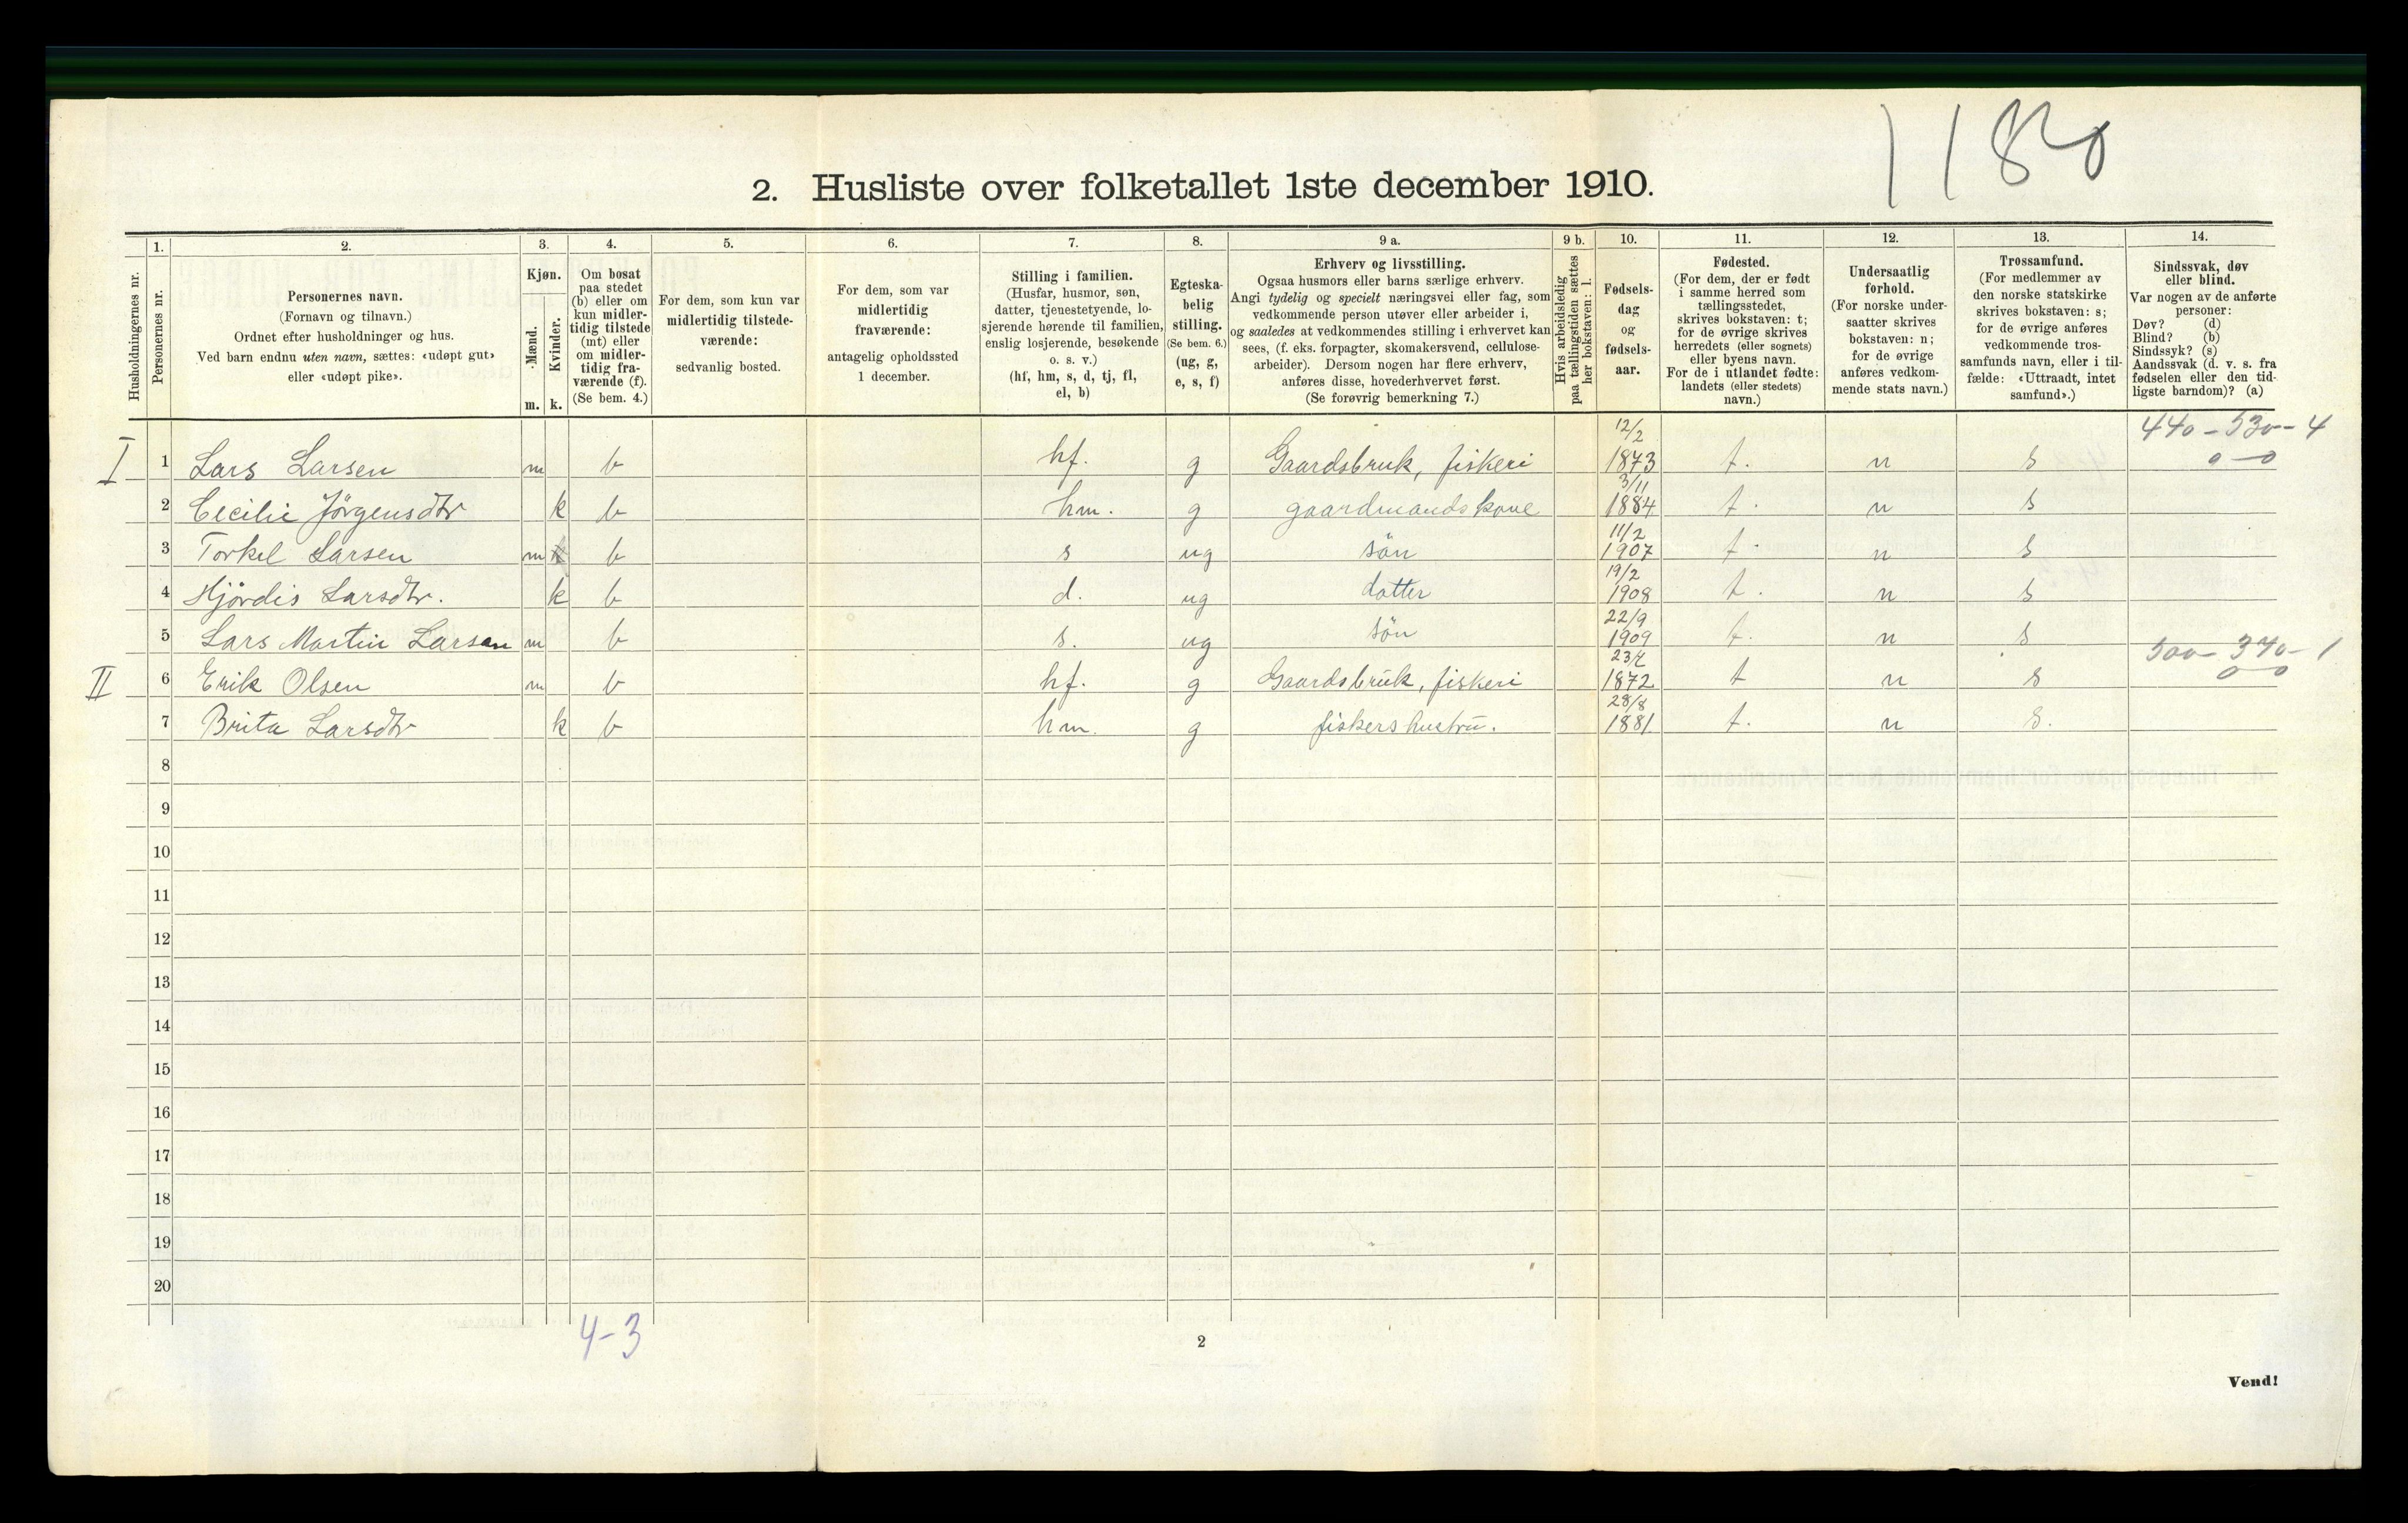 1180
2. Husliste over folketallet 1ste december 1910.
Husholdningernes nr.
1.
Personernes nr.
2.
Personernes navn.
(Fornavn og tilnavn.)
Ordnet efter husholdninger og hus.
Ved barn endnu uten navn, sættes: «udøpt gut»
eller «udøpt pike».
3.
Kjøn.
Mænd.
Kvinder.
m. k.
4.
Om bosat
paa stedet
(b) eller om
kun midler-
tidig tilstede
(mt) eller
om midler-
tidig fra-
værende (f).
(Se bem. 4.)
5.
For dem, som kun var
midlertidig tilstede-
værende:
sedvanlig bosted.
6.
For dem, som var
midlertidig
fraværende:
antagelig opholdssted
1 december.
7.
Stilling i familien.
(Husfar, husmor, søn,
datter, tjenestetyende, lo-
sjerende hørende til familien,
enslig losjerende, besøkende
o. s. v.)
(hf, hm, s, d, tj, fl,
el, b)
8.
Egteska-
belig
stilling.
(Se bem. 6.)
(ug, g,
e, s, f)
9 a.
Erhverv og livsstilling.
Ogsaa husmors eller barns særlige erhverv.
Angi tydelig og specielt næringsvei eller fag, som
vedkommende person utøver eller arbeider i,
og saaledes at vedkommendes stilling i erhvervet kan
sees, (f. eks. forpagter, skomakersvend, cellulose-
arbeider). Dersom nogen har flere erhverv,
anføres disse, hovederhvervet først.
(Se forøvrig bemerkning 7.)
9 b.
Hvis arbeidsledig
paa tællingstiden sættes
her bokstaven: l.
10.
Fødsels-
dag
og
fødsels-
aar.
11.
Fødested.
(For dem, der er født
i samme herred som
tællingsstedet,
skrives bokstaven: t;
for de øvrige skrives
herredets (eller sognets)
eller byens navn.
For de i utlandet fødte:
landets (eller stedets)
navn.)
12.
Undersaatlig
forhold.
(For norske under-
saatter skrives
bokstaven: n;
for de øvrige
anføres vedkom-
mende stats navn.)
13.
Trossamfund.
(For medlemmer av
den norske statskirke
skrives bokstaven: s;
for de øvrige anføres
vedkommende tros-
samfunds navn, eller i til-
fælde: «Uttraadt, intet
samfund».)
14.
Sindssvak, døv
eller blind.
Var nogen av de anførte
personer:
Døv? (d)
Blind? (b)
Sindssyk? (s)
Aandssvak (d. v. s. fra
fødselen eller den tid-
ligste barndom)? (a)
440 - 530 - 4
0 - 0
I 1 Lars Larsen m b hf. g Gaardsbruk, fiskeri 12/2 1873 t. n s
2 Cecilie Jörgensdtr k b hm. g gaardmandskone 3/11 1884 t. n s
3 Torkel Larsen m b s ug sön 11/2 1907 t. n s
4 Hjördis Larsdtr. k b d. ug datter 19/2 1908 t. n s
5 Lars Martin Larsen m b s. ug sön 22/9 1909 t. n s
500 - 370 - 1
0 - 0
II 6 Erik Olsen m b hf. g Gaardsbruk, fiskeri 1872 t n s
7 Brita Larsdtr k b hm. g fiskershustru. 28/8 1881 t. n s.
8
9
10
11
12
13
14
15
16
17
18
19
20
4-3
2
Vend!